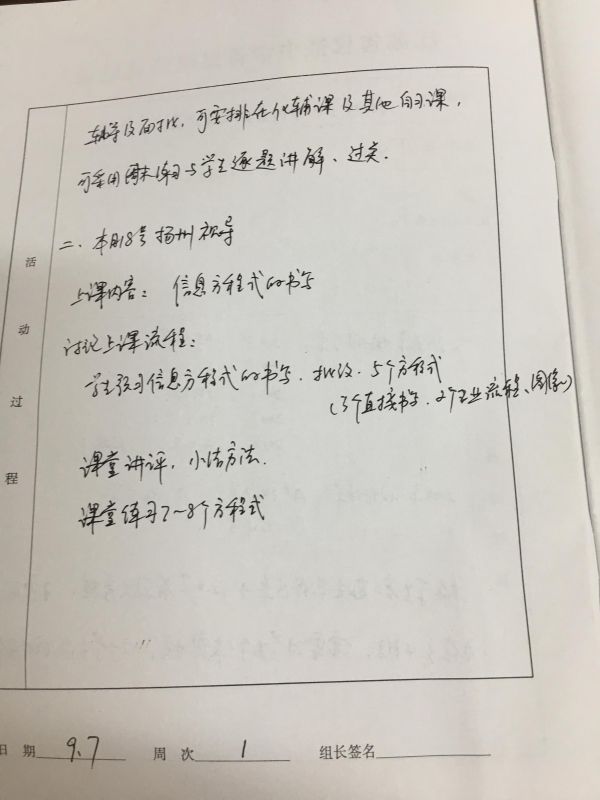 辅导及面批，可安排在化辅课及其他自习课，
可采用周末练习与学生逐题讲解、过关．
二、本月18号扬州视导
上课内容：信息方程式的书写
讨论上课流程：
学生预习信息方程式的书写．批改．5个方程式
（3个直接书写．2个工业流程、图像）
课堂讲评，小结方法．
课堂练习7～8个方程式
活动过程
日 期 9.7 周 次 1 组长签名